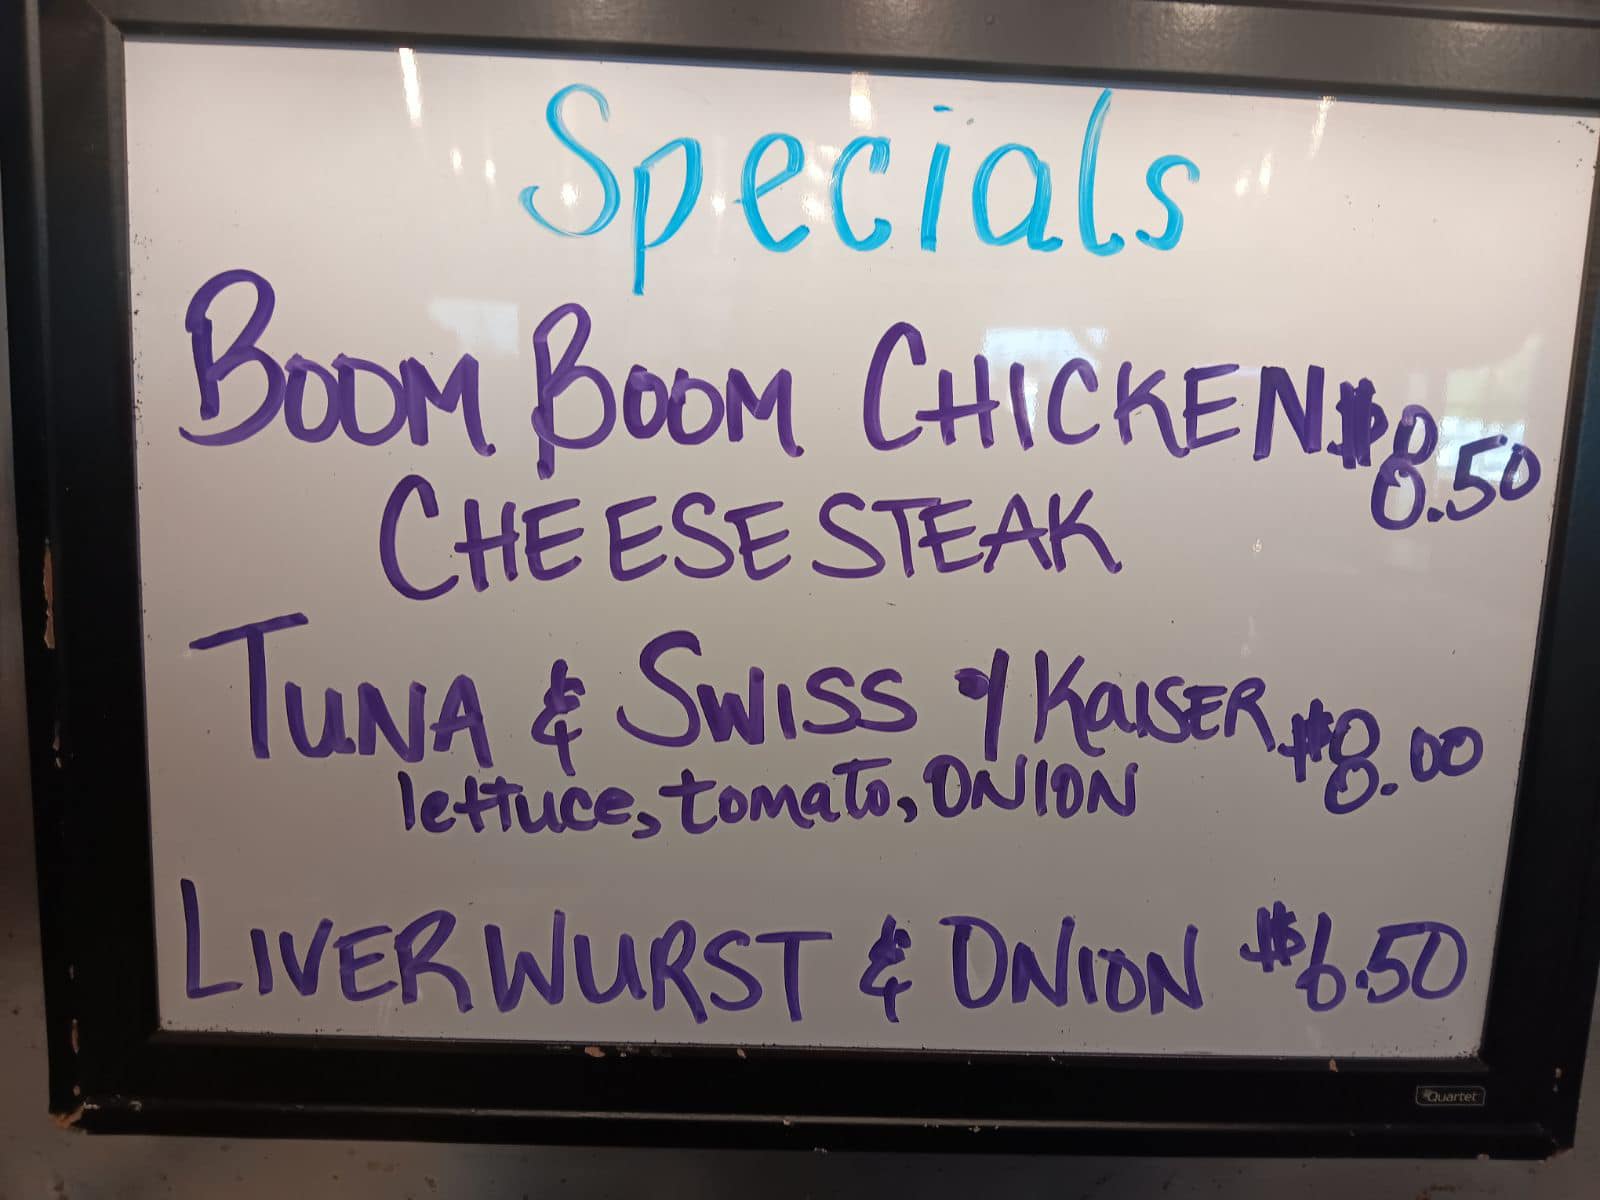 Specials
BOOM BOOM CHICKEN $8.50
CHEESESTEAK
TUNA & SWISS o/ KAISER $8.00
lettuce, tomato, ONION
LIVERWURST & ONION $6.50
Quartet